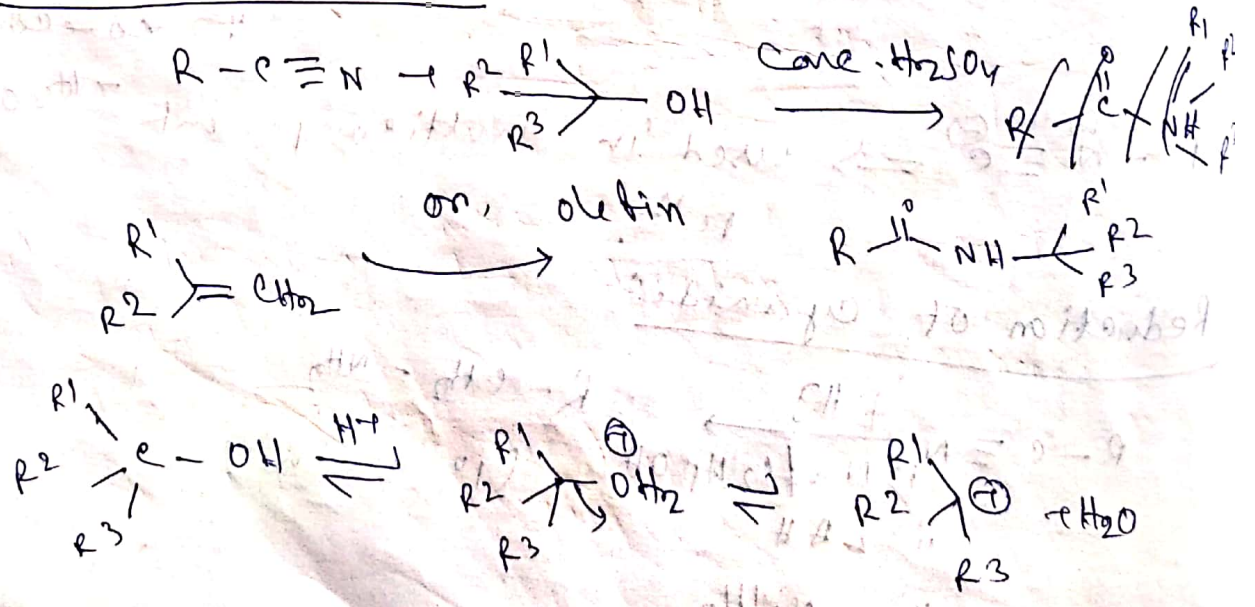 R - C ≡ N + R² R¹ R³ OH Conc. H₂SO₄
or, olefin
R¹ R² = CH₂
R O NH R¹ R2 R3
R¹ R² R³ C - OH H⁺ ⇌ R¹ R2 R3 ⊕ OH₂ ⇌ R¹ R2 R3 ⊕ + H₂O